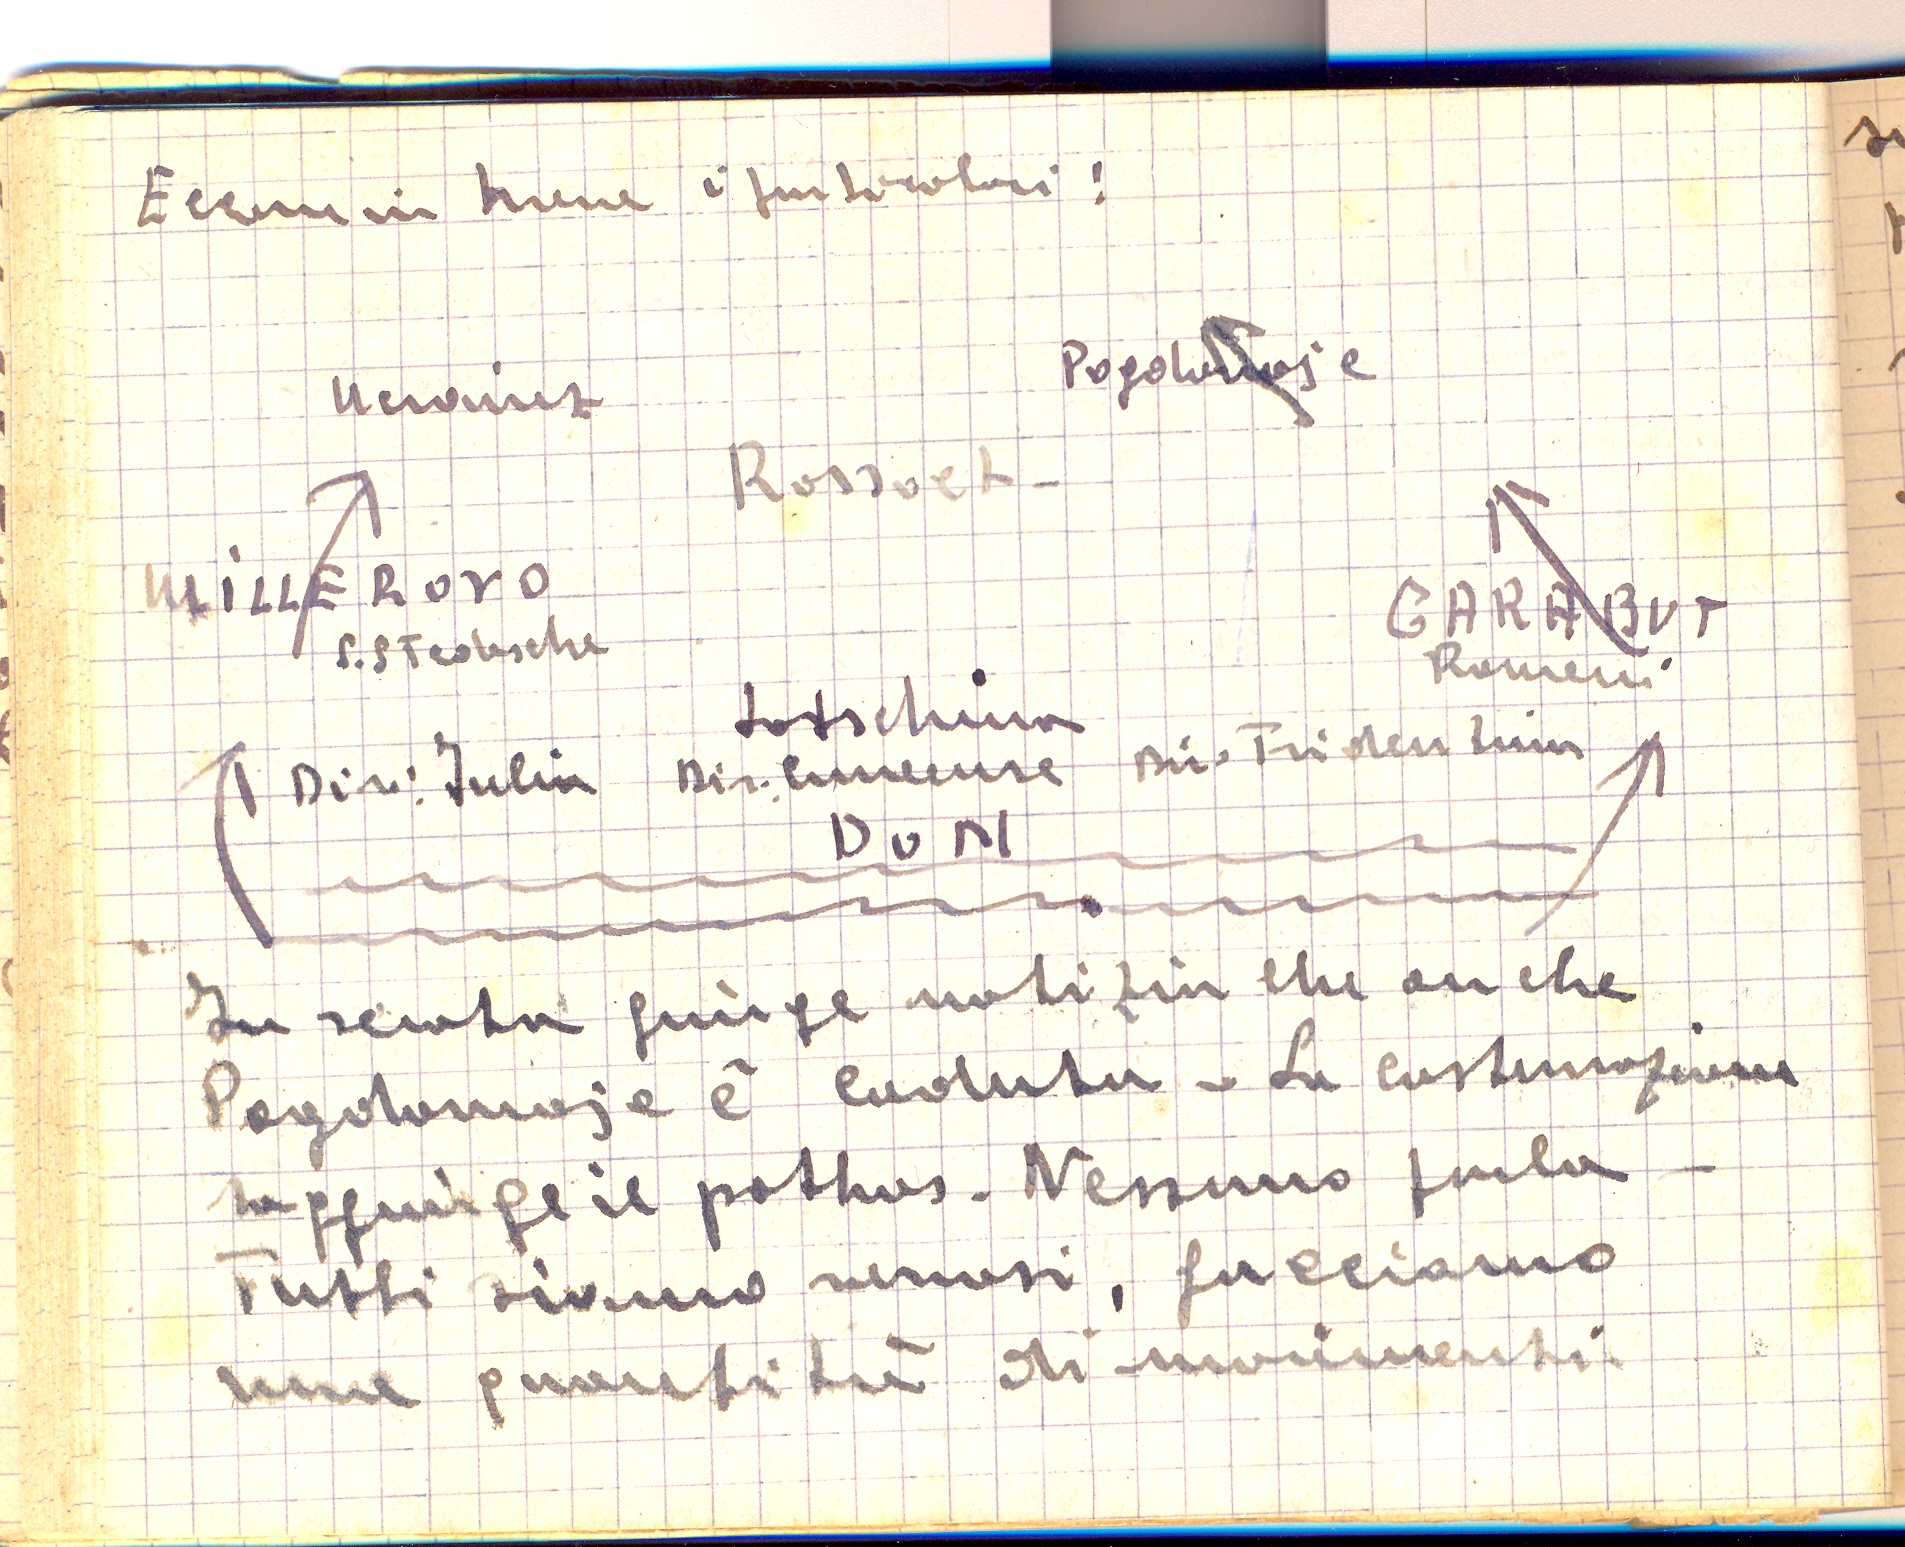 Eccoci in bene i particolari!
Ucraina
Pogolomoje
Rossoct -
MILLEROVO
S.S Tedesche
GARABUT
Romeni
Lotschina
Div: Julia Div: Cuneense Div. Tridentina
DON
In serata giunge notizia che anche
Pogolomoje è caduta - La costernazione
raggiunge il pathos. Nessuno parla -
Tutti siamo nervosi, facciamo
una quantità di movimenti